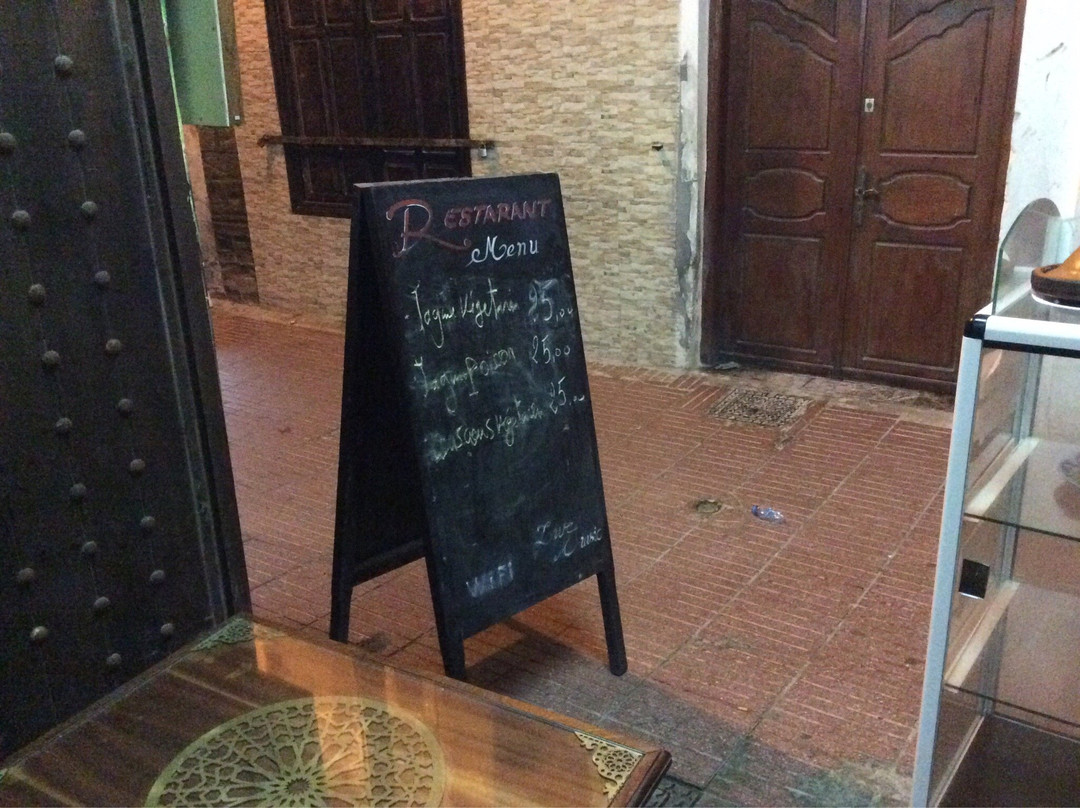 RESTARANT
Menu
Tagine Végétarien 25,00
Tagine poisson 25,00
Cousçous Végétarien 25,00
Live Music
WIFI